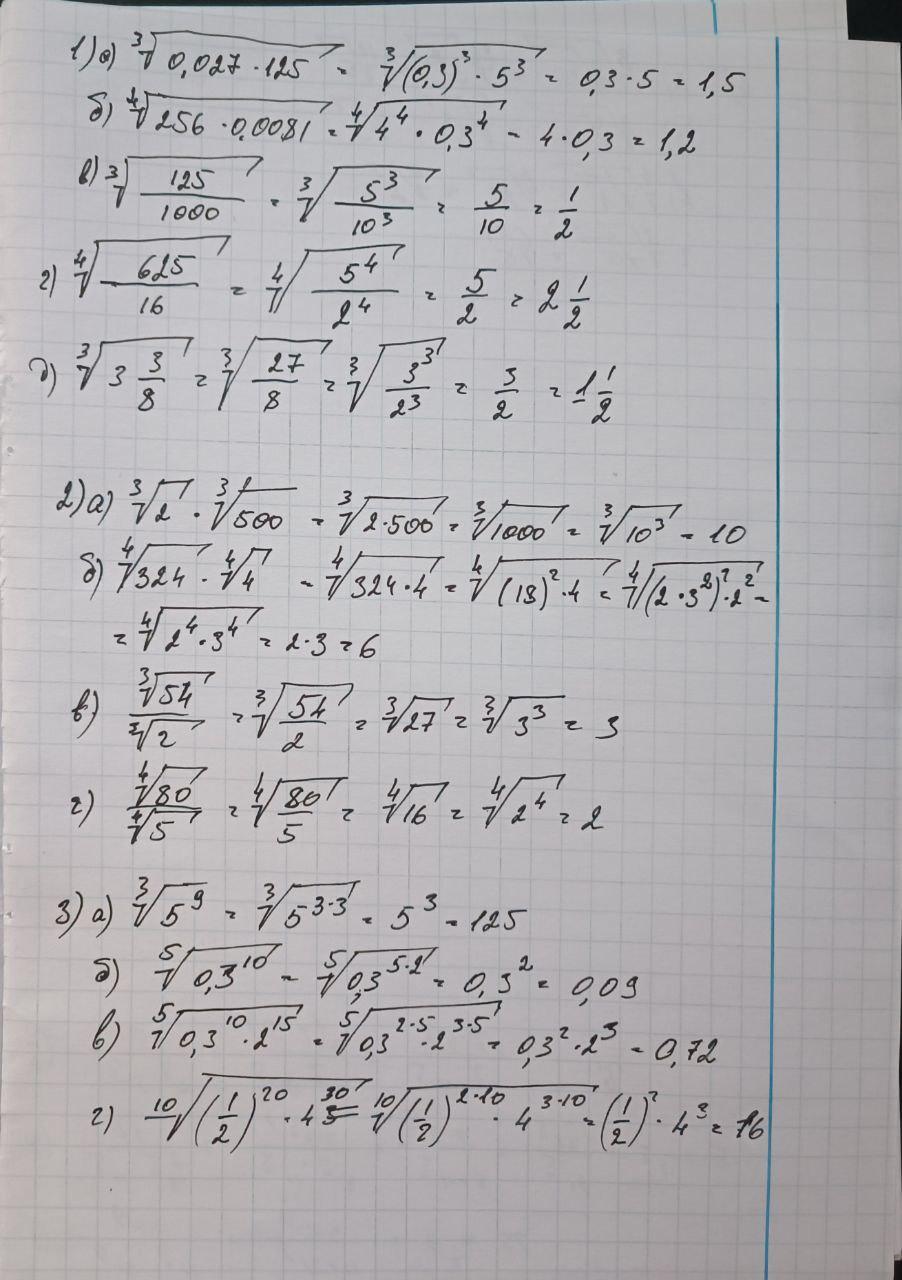 1) а) ∛(0,027 · 125) = ∛((0,3)³ · 5³) = 0,3 · 5 = 1,5
б) ∜(256 · 0,0081) = ∜(4⁴ · 0,3⁴) = 4 · 0,3 = 1,2
в) ∛(125/1000) = ∛(5³/10³) = 5/10 = 1/2
г) ∜(625/16) = ∜(5⁴/2⁴) = 5/2 = 2 1/2
д) ∛(3 3/8) = ∛(27/8) = ∛(3³/2³) = 3/2 = 1 1/2
2) а) ∛2 · ∛500 = ∛(2·500) = ∛1000 = ∛(10³) = 10
б) ∜324 · ∜4 = ∜(324·4) = ∜((18)²·4) = ∜((2·3²)²·2²) =
= ∜(2⁴·3⁴) = 2·3 = 6
в) ∛54/∛2 = ∛(54/2) = ∛27 = ∛(3³) = 3
г) ∜80/∜5 = ∜(80/5) = ∜16 = ∜(2⁴) = 2
3) а) ∛(5⁹) = ∛(5³˙³) = 5³ = 125
б) ⁵√(0,3¹⁰) = ⁵√(0,3⁵˙²) = 0,3² = 0,09
в) ⁵√(0,3¹⁰ · 2¹⁵) = ⁵√(0,3²˙⁵ · 2³˙⁵) = 0,3² · 2³ = 0,72
г) ¹⁰√((1/2)²⁰ · 4³⁰) = ¹⁰√((1/2)²˙¹⁰ · 4³˙¹⁰) = (1/2)² · 4³ = 16